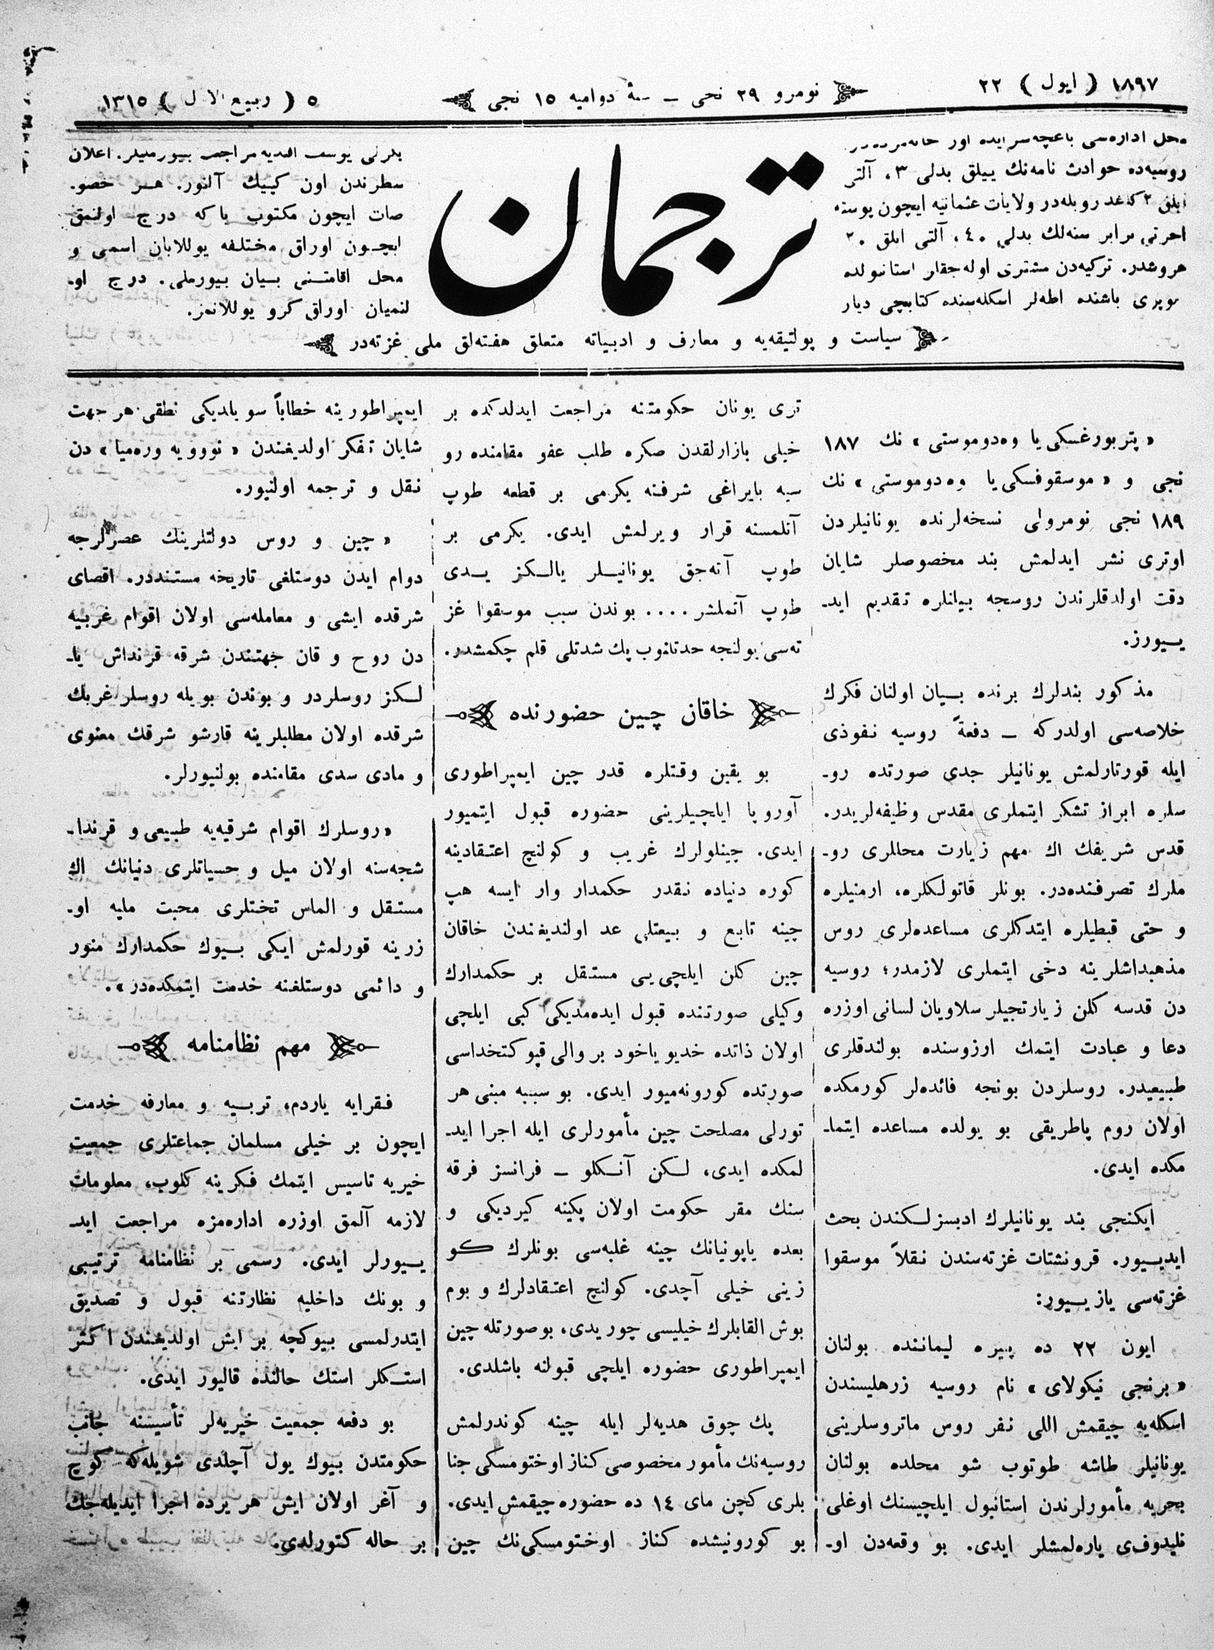 ١٨٩٧ ( ايول ) ٢٢
نومرو ٢٩ نجى ــ سنهٔ دواميه ١٥ نجى
٥ ( ربيع الاول ) ١٣١٥
محل اداره‌سى باغچه‌سرايده اور
روسيه‌ده حوادث نامه‌نك ييلق بدلى ٣، آلتى
ايلق ٢ كاغد روبله‌در ولايات عثمانيه ايچون پوسته
اجرتى برابر سنه‌لك بدلى ٤٠، آلتى ايلق ٢٠
غروشدر. تركيه‌دن مشترى اوله‌جقلر استانبولده
كوپرى باشنده اطه‌لر اسكله‌سنده كتابچى ديار
ترجمان
بكرلى يوسف افنديه مراجعت بيورمليدر. اعلان
سطرندن اون كپيك آلنور. هر خصو.
صات ايچون مكتوب ياكه درج اولنمق
ايچون اوراق مختلفه يوللايان اسمى و
محل اقامتنى بيان بيورملى. درج او.
لنميان اوراق كرو يوللانمز.
سياست و پولتيقه‌يه و معارف و ادبياته متعلق هفته‌لق ملى غزته‌در
« پتربورغسكى‌يا وه‌دوموستى » نك ١٨٧
نجى و « موسقوفسكى‌يا وه‌دوموستى » نك
١٨٩ نجى نومرولى نسخه‌لرنده يونانيلردن
اوترى نشر ايدلمش بند مخصوصلر شايان
دقت اولدقلرندن روسجه بيانلره تقديم ايد‍ـ
يورز.
مذكور بندلرك برنده بيان اولنان فكرك
خلاصه‌سى اولدركه ــ دفعةً روسيه نفوذى
ايله قورتارلمش يونانيلر جدى صورتده رو‍ـ
سلره ابراز تشكر ايتملرى مقدس وظيفه‌لريدر.
قدس شريفك اك مهم زيارت محللرى رو‍ـ
ملرك تصرفنده‌در. بونلر قاتولكلره، ارمنيلره
و حتى قبطيلره ايتدكلرى مساعده‌لرى روس
مذهبداشلرينه دخى ايتملرى لازمدر؛ روسيه
دن قدسه كلن زيارتجيلر سلاويان لسانى اوزره
دعا و عبادت ايتمك ارزوسنده بولندقلرى
طبيعيدر. روسلردن بونجه فائده‌لر كورمكده
اولان روم پاطريقى بو يولده مساعده ايتما‍ـ
مكده ايدى.
ايكنجى بند يونانيلرك ادبسزلكندن بحث
ايديور. قرونشتات غزته‌سندن نقلاً موسقوا
غزته‌سى يازييور:
ايون ٢٢ ده پيره ليماننده بولنان
« برنجى نيكولاى » نام روسيه زرهليسندن
اسكله‌يه چيقمش اللى نفر روس ماتروسلرينى
يونانيلر طاشه طوتوب شو محلده بولنان
بحريه مأمورلرندن استانبول ايلچيسنك اوغلى
نليدوف‌ى ياره‌لمشلر ايدى. بو وقعه‌دن او‍ـ
ترى يونان حكومتنه مراجعت ايدلدكده بر
خيلى بازارلقدن صكره طلب عفو مقامنده رو
سيه بايراغى شرفنه يكرمى بر قطعه طوپ
آتلمسنه قرار ويرلمش ايدى. يكرمى بر
طوپ آته‌جق يونانيلر يالكز يدى
طوپ آتملشر.... بوندن سبب موسقوا غز
ته‌سى بولنجه حدتلنوب پك شدتلى قلم چكمشدر.
خاقان چين حضورنده
بو يقين وقتلره قدر چين ايمپراطورى
آوروپا ايلچيلرينى حضوره قبول ايتميور
ايدى. چينلولرك غريب و كولنج اعتقادينه
كوره دنياده نقدر حكمدار وار ايسه هپ
چينه تابع و بيعتلى عد اولنديغندن خاقان
چين كلن ايلچى‌يى مستقل بر حكمدارك
وكيلى صورتنده قبول ايده‌مديكى كبى ايلچى
اولان ذاتده خديو ياخود بر والى قپو كتخداسى
صورتده كورونه‌ميور ايدى. بو سببه مبنى هر
تورلى مصلحت چين مأمورلرى ايله اجرا ايد‍ـ
لمكده ايدى، لكن آنكلو ــ فرانسز فرقه
سنك مقر حكومت اولان پكينه كيرديكى و
بعده ياپونيانك چينه غلبه‌سى بونلرك كو
زينى خيلى آچدى. كولنج اعتقادلرك و بوم
بوش القابلرك خيليسى چوريدى، بوصورتله چين
ايمپراطورى حضوره ايلچى قبولنه باشلدى.
پك چوق هديه‌لر ايله چينه كوندرلمش
روسيه‌نك مأمور مخصوصى كناز اوختومسكى جنا
بلرى كچن ماى ١٤ ده حضوره چيقمش ايدى.
بو كورونيشده كناز اوختومسكى‌نك چين
ايمپراطورينه خطاباً سويلديكى نطقى هر جهت
شايان تفكر اولديغندن « نوويه وره‌ميا » دن
نقل و ترجمه اولنيور.
« چين و روس دولتلرينك عصرلرجه
دوام ايدن دوستلغى تاريخه مستنددر. اقصاى
شرقده ايشى و معامله‌سى اولان اقوام غربيه
دن روح و قان جهتندن شرقه قرنداش يا‍ـ
لكز روسلردر و بوندن بويله روسلر غربك
شرقده اولان مطلبلرينه قارشو شرقك معنوى
و مادى سدى مقامنده بولنيورلر.
« روسلرك اقوام شرقيه‌يه طبيعى و قرندا‍ـ
شجه‌سنه اولان ميل و حسياتلرى دنيانك اك
مستقل و الماس تختلرى محبت مليه او‍ـ
زرينه قورلمش ايكى بيوك حكمدارك منور
و دائمى دوستلغنه خدمت ايتمكده‌در ».
مهم نظامنامه
فقرايه ياردم، تربيه و معارفه خدمت
ايچون بر خيلى مسلمان جماعتلرى جمعيت
خيريه تاسيس ايتمك فكرينه كلوب، معلومات
لازمه آلمق اوزره اداره‌مزه مراجعت ايد‍ـ
يورلر ايدى. رسمى بر نظامنامه ترتيبى
و بونك داخليه نظارتنه قبول و تصديق
ايتدرلمسى بيوكجه بر ايش اولديغندن اكثر
استكلر استك حالنده قاليور ايدى.
بو دفعه جمعيت خيريه‌لر تأسيسنه جانب
حكومتدن بيوك يول آچلدى شويله‌كه كوچ
و آغر اولان ايش هر يرده اجرا ايديله‌جك
بر حاله كتورلدى.